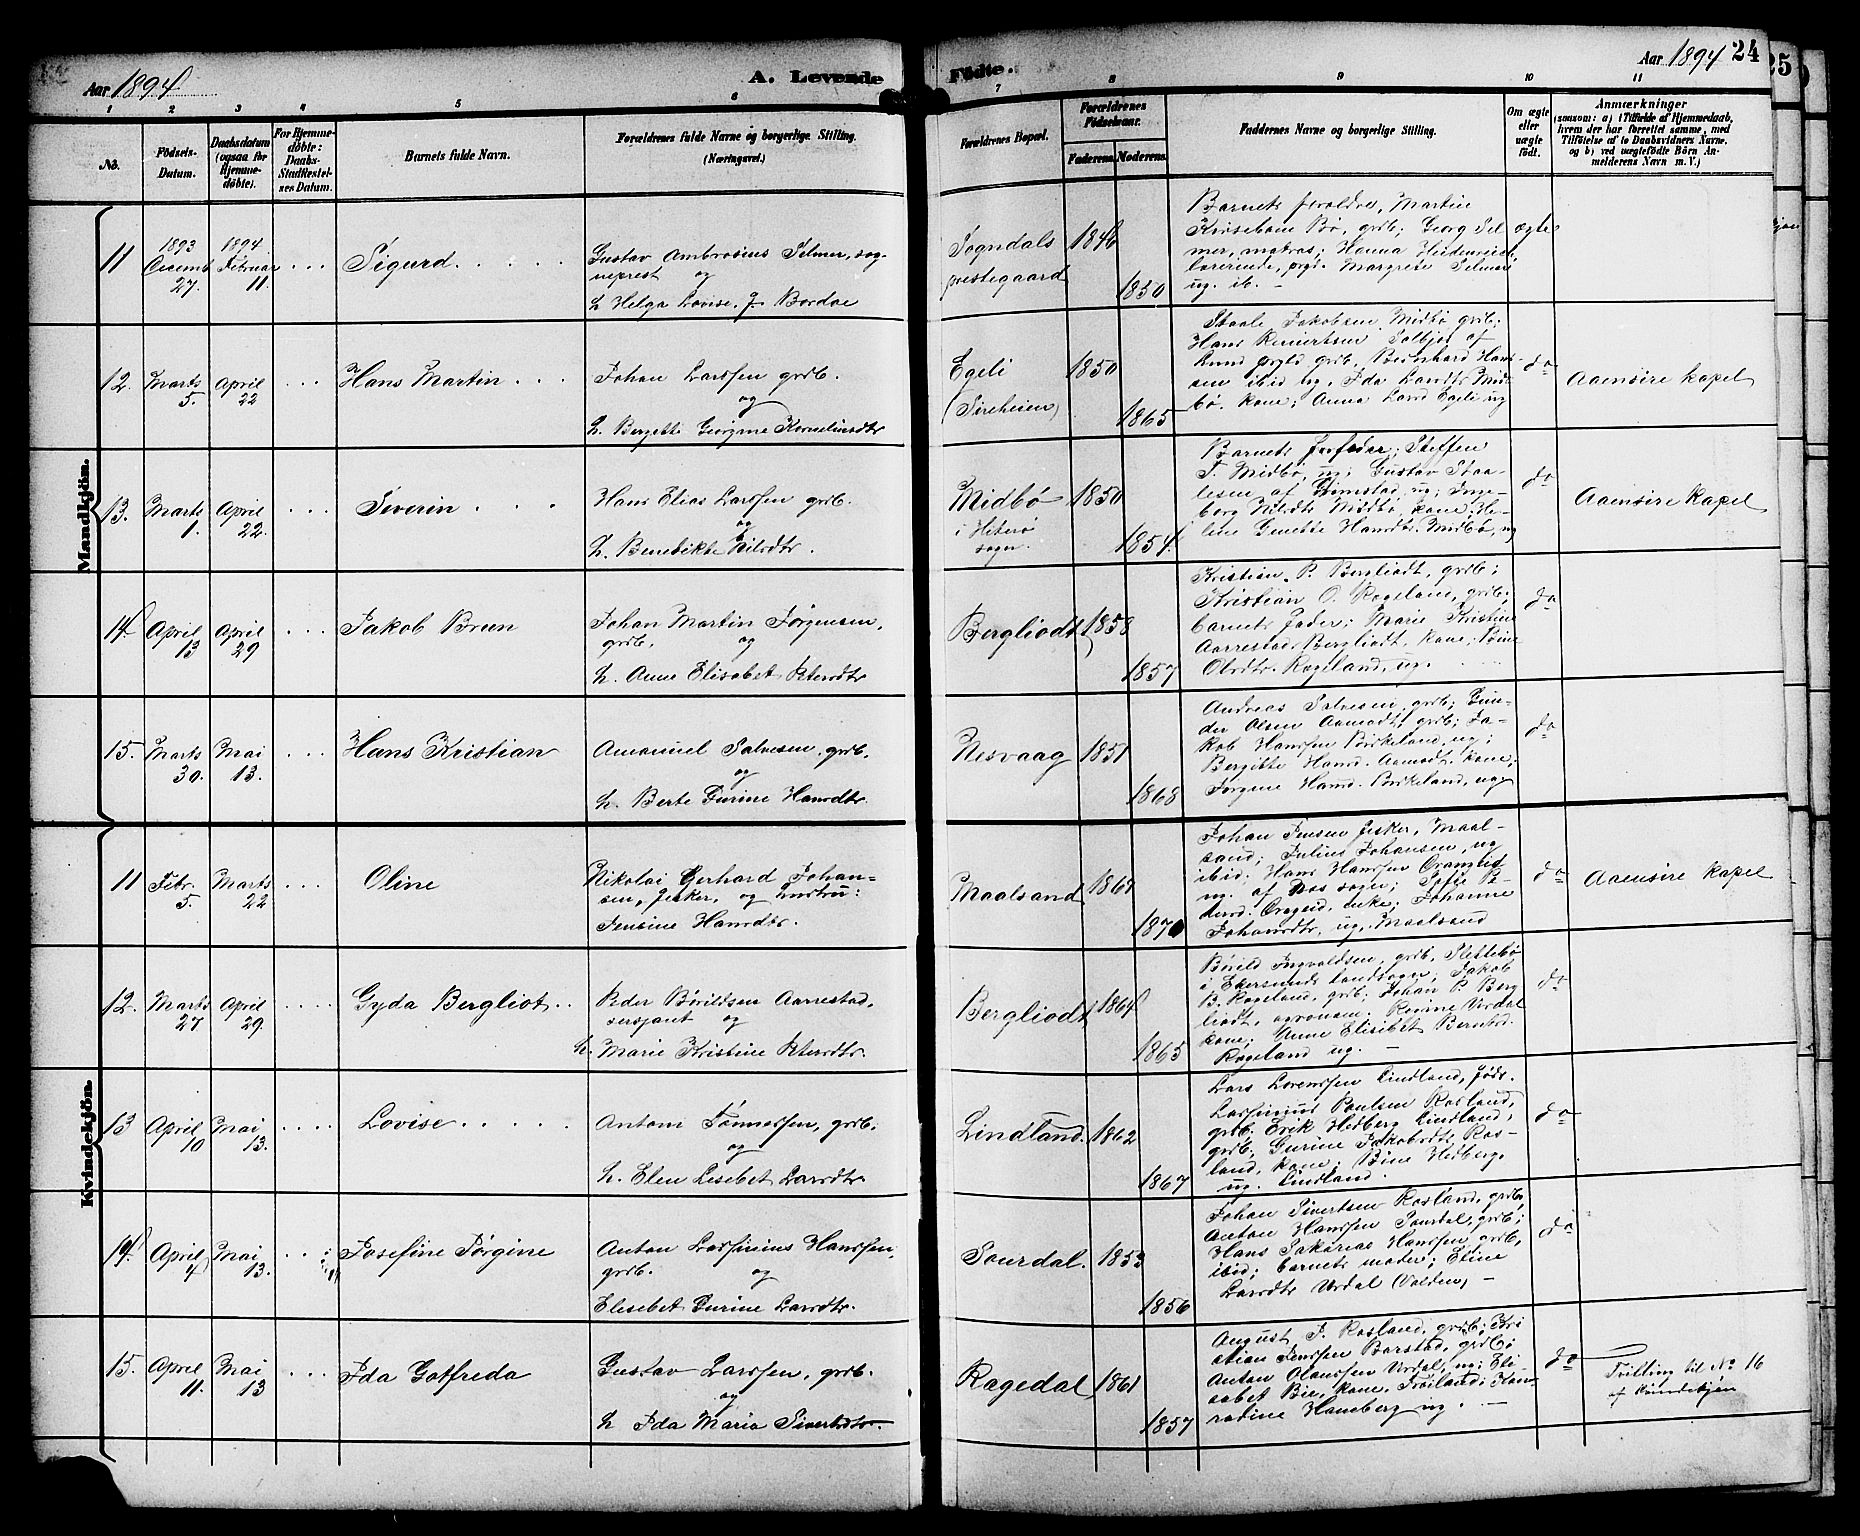 Aar 1894
A. Levende
Födte.
Aar 1894
24
25
1 2 3 4 5 6 7 8 9 10 11
No.
Födsels-
Datum.
Daabsdatum
(ogsaa for
Hjemme-
döbte).
For Hjemme-
döbte:
Daabs-
Stadfæstel-
ses Datum.
Barnets fulde Navn.
Forældrenes fulde Navne og borgerlige Stilling.
(Næringsvei.)
Forældrenes Bopæl.
Forældrenes
Födselsaar.
Faderens.
Moderens.
Faddernes Navne og borgerlige Stilling.
Om ægte
eller
uægte
födt.
Anmærkninger
(saasom: a) i Tilfælde af Hjemmedaab,
hvem der har forrettet samme, med
Tilföielse af to Daabsvidners Navne,
og b) ved uægtefödte Börn An-
melderens Navn m. V.)
Mandkjön.
11
1893
Decemb
27.
1894
Februar
11.
Sigurd.
Gustav Ambrosius Selmer, sog-
neprest
og
h. Helga Lovise, f. Bordoe
Sogndals
prestegaard
1846
1850
Barnets foreldre, Martine
Kristiane Bø, grdb; Georg Sel
mer, matros; Hanna Heidenreich
lærerinde, Margrete Selmer
ug. ib. -
ægte
12.
Marts
5.
April
22
Hans Martin
Johan Larssen grdb.
og
h. Bergitte Georgine Kornelиusdtr
Egeli
(Sireheien)
1850
1865
Staale Jakobsen Midbø grdb;
Hans Reinertsen Solbjør af
Lund prgld grdb, Bernhard Han-
sen ibid ug, Ida Larsdtr Mid
bø. kone; Anna Larsd Egeli ug
do
Aaensire kapel
13.
Marts
1.
April
22.
Severin
Hans Elias Larssen grdb.
og
h. Benedikte Nilsdtr.
Midbø
i Hiterø
sogn.
1850
1854.
Barnets forfeder; Steffen
T. Midbø, ug; Gustav Staa-
lesen af Grimstad, ug; Inge-
borg Nilsdtr Midbø, kone; He-
line Genette Hansdtr. Midbø, ug
do
Aaensire kapel
14
April
13
April
29
Jakob Brun
Johan Martin Jørgensen,
grdb. og
h. Anne Elisabet Petersdtr
Bergliodt
1858
1857
Kristian P. Bergliodt, grdb;
Kristian O. Rageland, grdb;
barnets fader; Marie Kristine
Aarrestad Bergliodt, kone;
Olsdtr. Rageland, ug.
do
15.
Marts
30.
Mai
13.
Hans Kristian
Amanuel Salvesen, grdb.
og
h. Berte Gurine Hansdtr.
Nesvaag
1851
1868
Andreas Salvesen, grdb; Gun-
der Olsen Aamodt, grdb; Ja-
kob Hanssen Birkeland, ug;
Bergitte Hansd. Aamodt, kone,
Jørgine Hansd. Birkeland, ug
do
Kvindekjön.
11
Febr.
5.
Marts
22
Oline
Nikolai Gerhard Johan-
sen, fisker, og hustru:
Jensine Hansdtr.
Maalsand
1867
1870
Johan Jensen fisker, Maal-
sand; Julius Johansen, ug
ibid; Hans Hanssen
ug. af sogn; Sofie P-
enke; Johanne
Johansdtr, ug, Maalsand
do
Aaensire kapel
12.
Marts
27
April
29.
Gyda Bergliot
Peder Børildsen Aarrestad,
sersjant og
h. Marie Kristine Petersdtr.
Bergliodt
1864
1865
Børild Ingvaldsen, grdb, Slettebø
i Ekersunds landsogn; Jakob
B. Rageland, grdb; Johan P. Berg
liodt, agronom; Urdal
kone; Anne Elisabet Berntsd.
Rageland ug.
do
13
April
10
Mai
13.
Lovise
Anton Tønnessen, grdb;
og
h. Elen Lisebet Larsdtr.
Lindland.
1862
1867
Lars Lorentssen Lindland, føds.
Paulsen Rosland,
grdb. Erik Hedberg Lindland,
grdb, Gurine Jakobsdtr Ros-
land, kone; Bine Hedberg,
ug. Lindland.
do
14.
April
4
Mai
13.
Josefine Jørgine
Anton Lassinius Hanssen,
grdb. og
Elisebet Gurine Larsdtr.
Sourdal.
1853
1856
Johan Sivertsen Rosland, grdb,
Anton Hanssen Sourdal, grdb;
Hans Sakarias Hanssen grdb,
ibid; barnets moder; Eline
Larsdtr Urdal (Valden) -
do
15.
April
11.
Mai
13
Ida Gotfreda
Gustav Larssen, grdb.
og
h Ida Maria Sivertsdtr
Ragedal
1861
1857
August J. Rosland, grdb; Kri
stian Jenssen Barstad, grdb;
Anton Olaussen Urdal, ug; Eli-
sabet Bie, kone, Frøiland; Kon-
radine Hamberg ug.
do
Tvilling til No 16
af Kvindekjøn